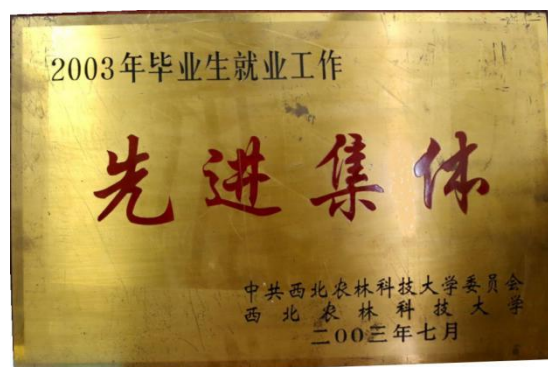 2003年毕业生就业工作
先进集体
中共西北农林科技大学委员会
西北农林科技大学
二00三年七月